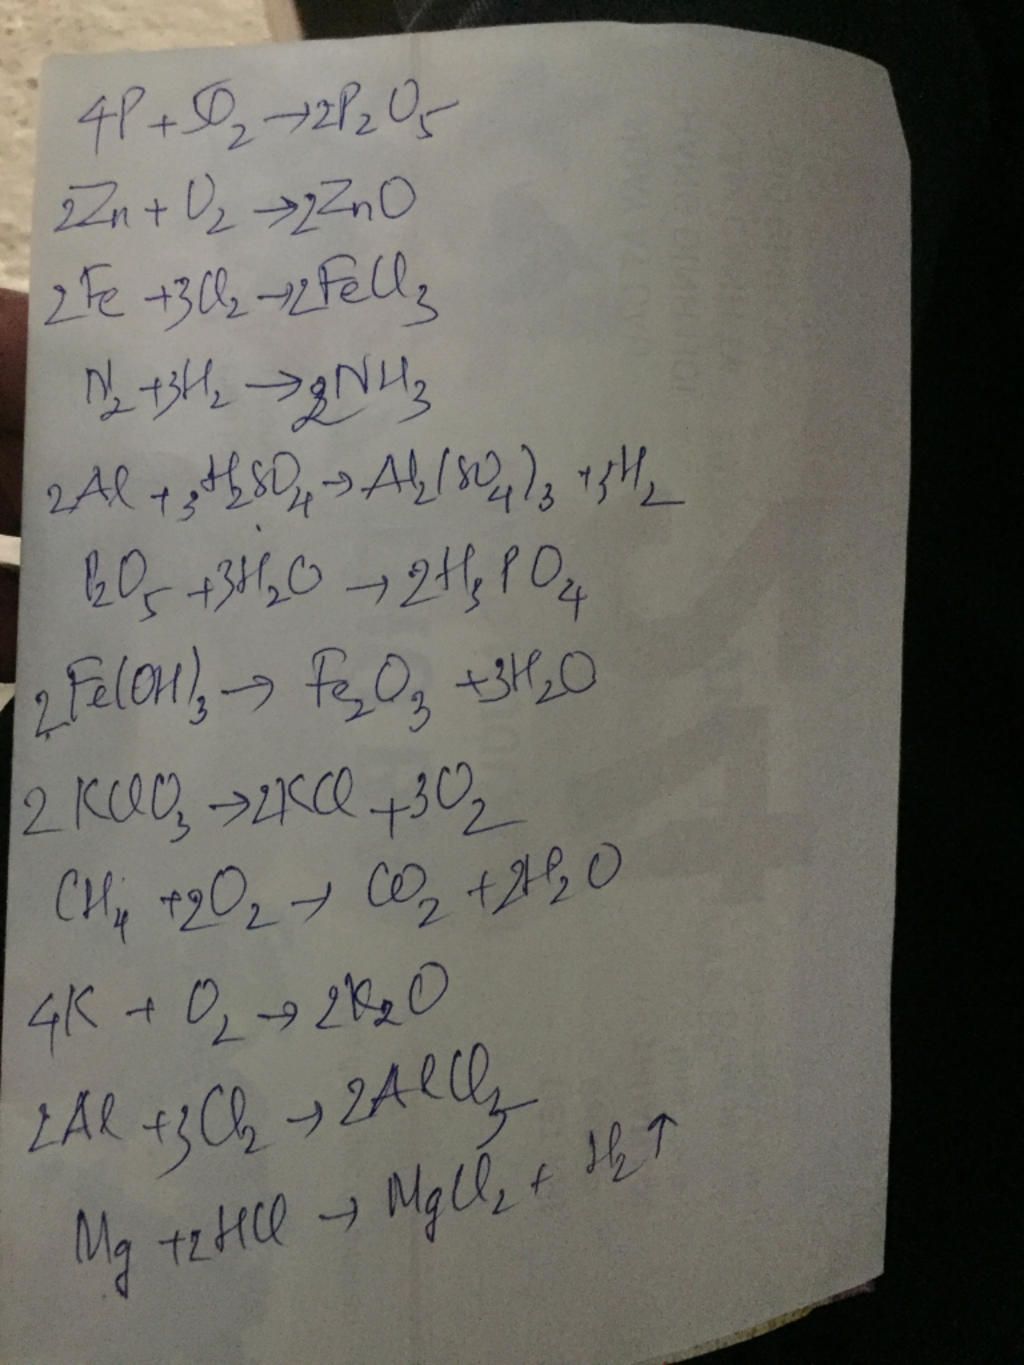 4P + 5O₂ → 2P₂O₅
2Zn + O₂ → 2ZnO
2Fe + 3Cl₂ → 2FeCl₃
N₂ + 3H₂ → 2NH₃
2Al + 3H₂SO₄ → Al₂(SO₄)₃ + 3H₂
P₂O₅ + 3H₂O → 2H₃PO₄
2Fe(OH)₃ → Fe₂O₃ + 3H₂O
2KClO₃ → 2KCl + 3O₂
CH₄ + 2O₂ → CO₂ + 2H₂O
4K + O₂ → 2K₂O
2Al + 3Cl₂ → 2AlCl₃
Mg + 2HCl → MgCl₂ + H₂↑